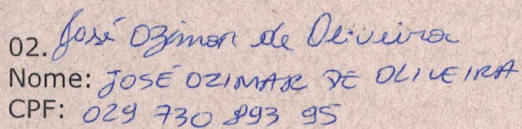 02. José Ozimar de Oliveira
Nome: JOSÉ OZIMAR DE OLIVEIRA
CPF: 029 730 893 95